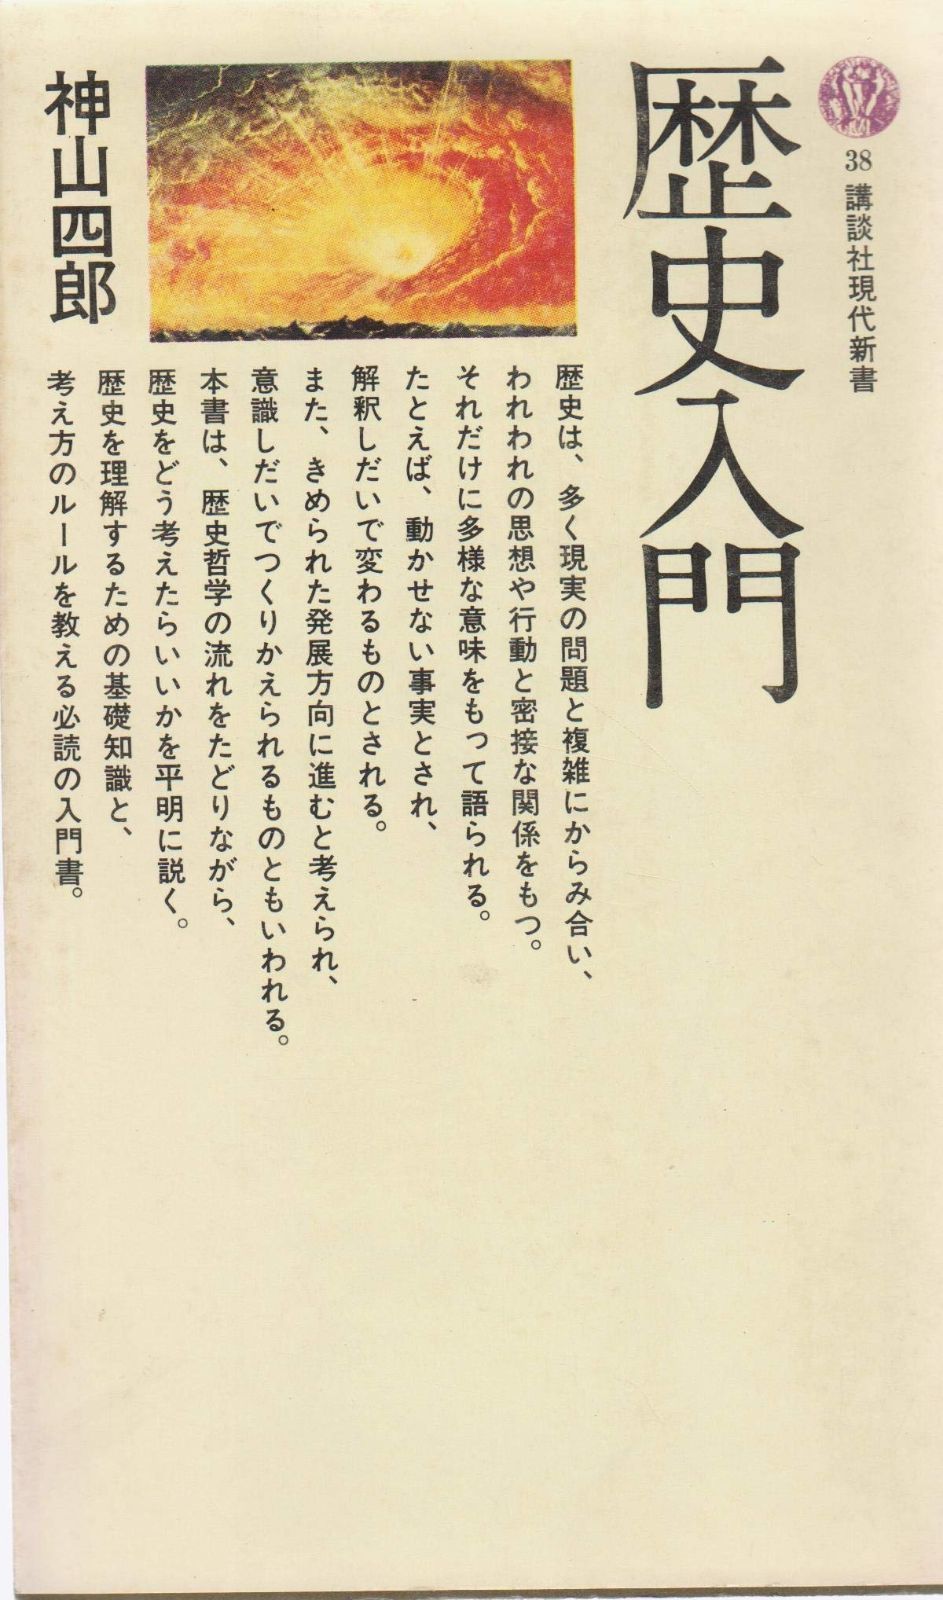 38 講談社現代新書
歴史入門
歴史は、多く現実の問題と複雑にからみ合い、
われわれの思想や行動と密接な関係をもつ。
それだけに多様な意味をもって語られる。
たとえば、動かせない事実とされ、
解釈しだいで変わるものとされる。
また、きめられた発展方向に進むと考えられ、
意識しだいでつくりかえられるものともいわれる。
本書は、歴史哲学の流れをたどりながら、
歴史をどう考えたらいいかを平明に説く。
歴史を理解するための基礎知識と、
考え方のルールを教える必読の入門書。
神山四郎